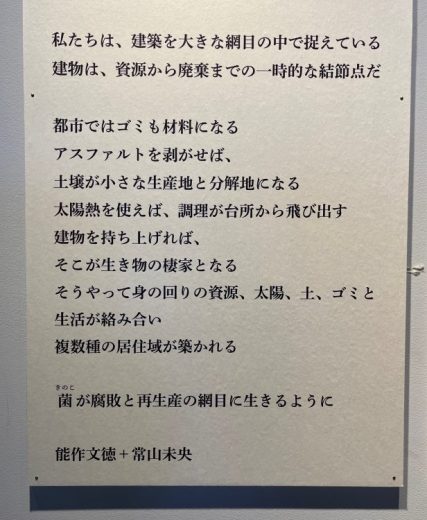 私たちは、建築を大きな網目の中で捉えている
建物は、資源から廃棄までの一時的な結節点だ
都市ではゴミも材料になる
アスファルトを剥がせば、
土壌が小さな生産地と分解地になる
太陽熱を使えば、調理が台所から飛び出す
建物を持ち上げれば、
そこが生き物の棲家となる
そうやって身の回りの資源、太陽、土、ゴミと
生活が絡み合い
複数種の居住域が築かれる
きのこ
菌が腐敗と再生産の網目に生きるように
能作文徳＋常山未央